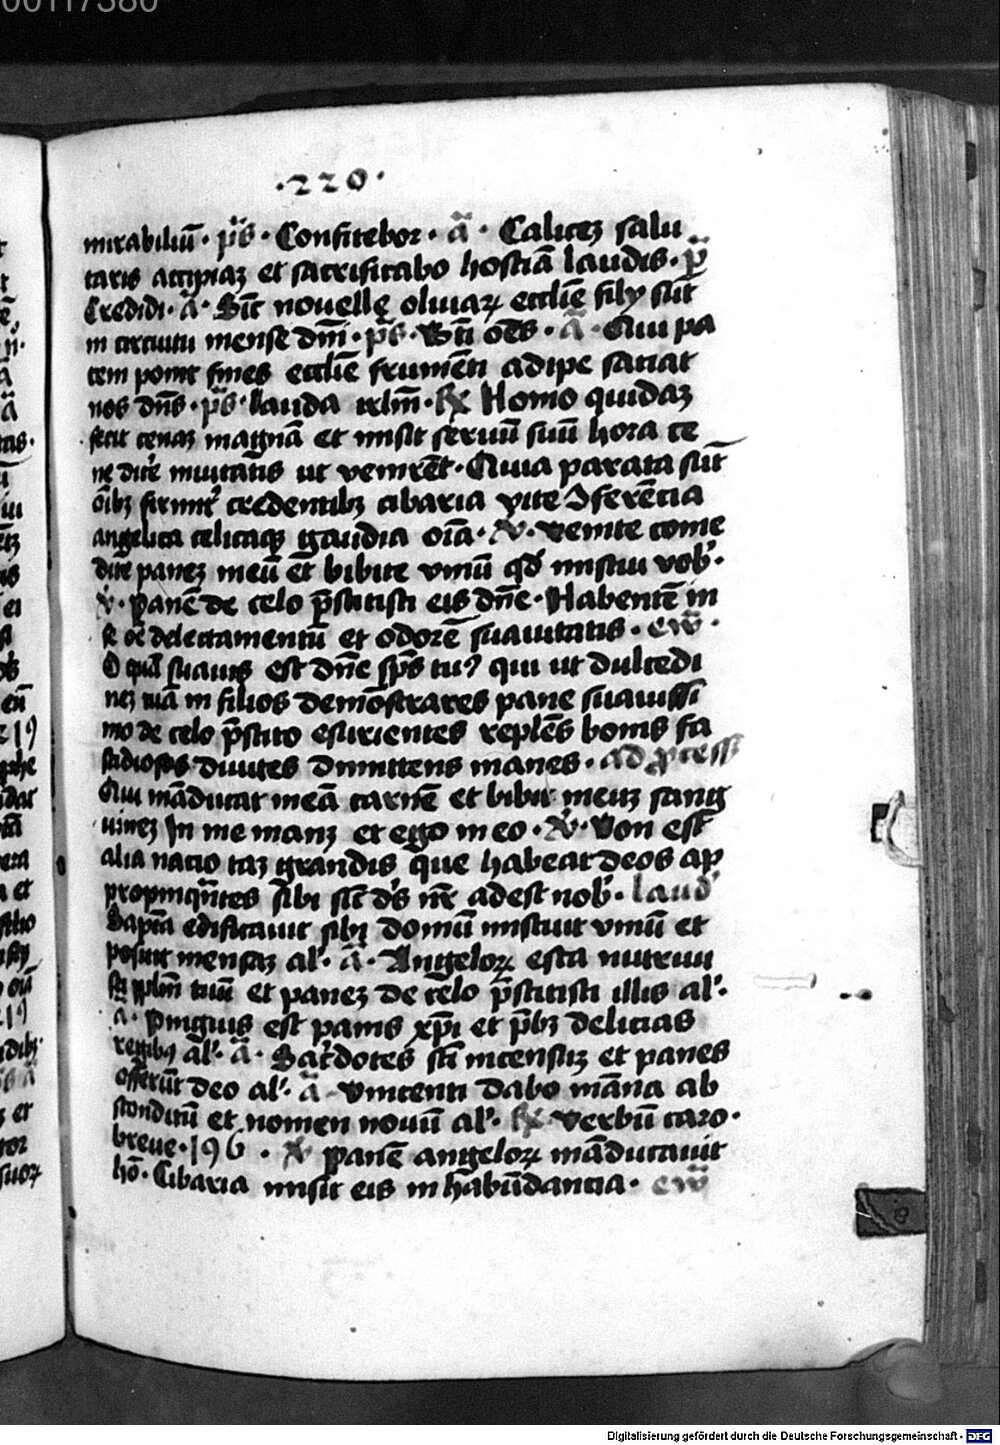 00117380
·220·
mirabiliū· ps̄· Confitebor· ā· Calicez salu
taris accipiaz et sacrificabo hostiā laudis· p̄
Credidi· ā· Sic̄ nouelle oliuaꝝ ecclie filij sūt
in circuitu mense dn̄i· ps̄· Bt̄i oēs· ā· Qui pa
cem ponit fines ecclie frumēti adipe saciat
nos dn̄s· ps̄· lauda irlm̄· ℟ Homo quidaz
fecit cenaz magnā et misit seruū suū hora ce
ne dice inuitatis ut venirēt· Quia parata sūt
oīb3 credentib3 cibaria vite Iferēcia
angelica celicaqꝫ gaudia oīa· ℣· venite come
dite panez meū et bibite vinū qd̄ miscui vob̄·
℣· panē de celo p̄stitisti eis dn̄e· Habentē in
se oē delectamentū et odorē suauitatis· ew̄·
O quā suauis est dn̄e sp̄s tu9 qui ut dulcedi
nez tuā in filios demōstrares pane suauissi
mo de celo p̄stito esurientes replēs bonis fa
stidiosos diuites dimittens inanes· ad p̄cess
Qui māducat meā carnē et bibit meuz sang
uinez In me manz et ego in eo· ℣· Non est
alia nacio taz grandis que habeat deos ap
propinqn̄tes sibi sic̄ d̄s nr̄ adest nob̄· laud̄
Sapīa edificauit sibi domū miscuit vinū et
posuit mensaz al̄· ā· Angeloꝝ esca nutriui
sti pplm̄ tuū et panez de celo p̄stitisti illis al̄·
ā· pinguis est panis xp̄i et p̄b3 delicias
regib9 al̄· ā· Sac̄dotes sc̄i incensuz et panes
offerūt deo al̄· ā· vincenti dabo māna ab
sconditū et nomen nouū al̄· ℟ verbū caro·
breue· 196· ℣ panē angeloꝝ māducauit
hō· Cibaria misit eis in habūdancia· ew̄
Digitalisierung gefördert durch die Deutsche Forschungsgemeinschaft - DFG